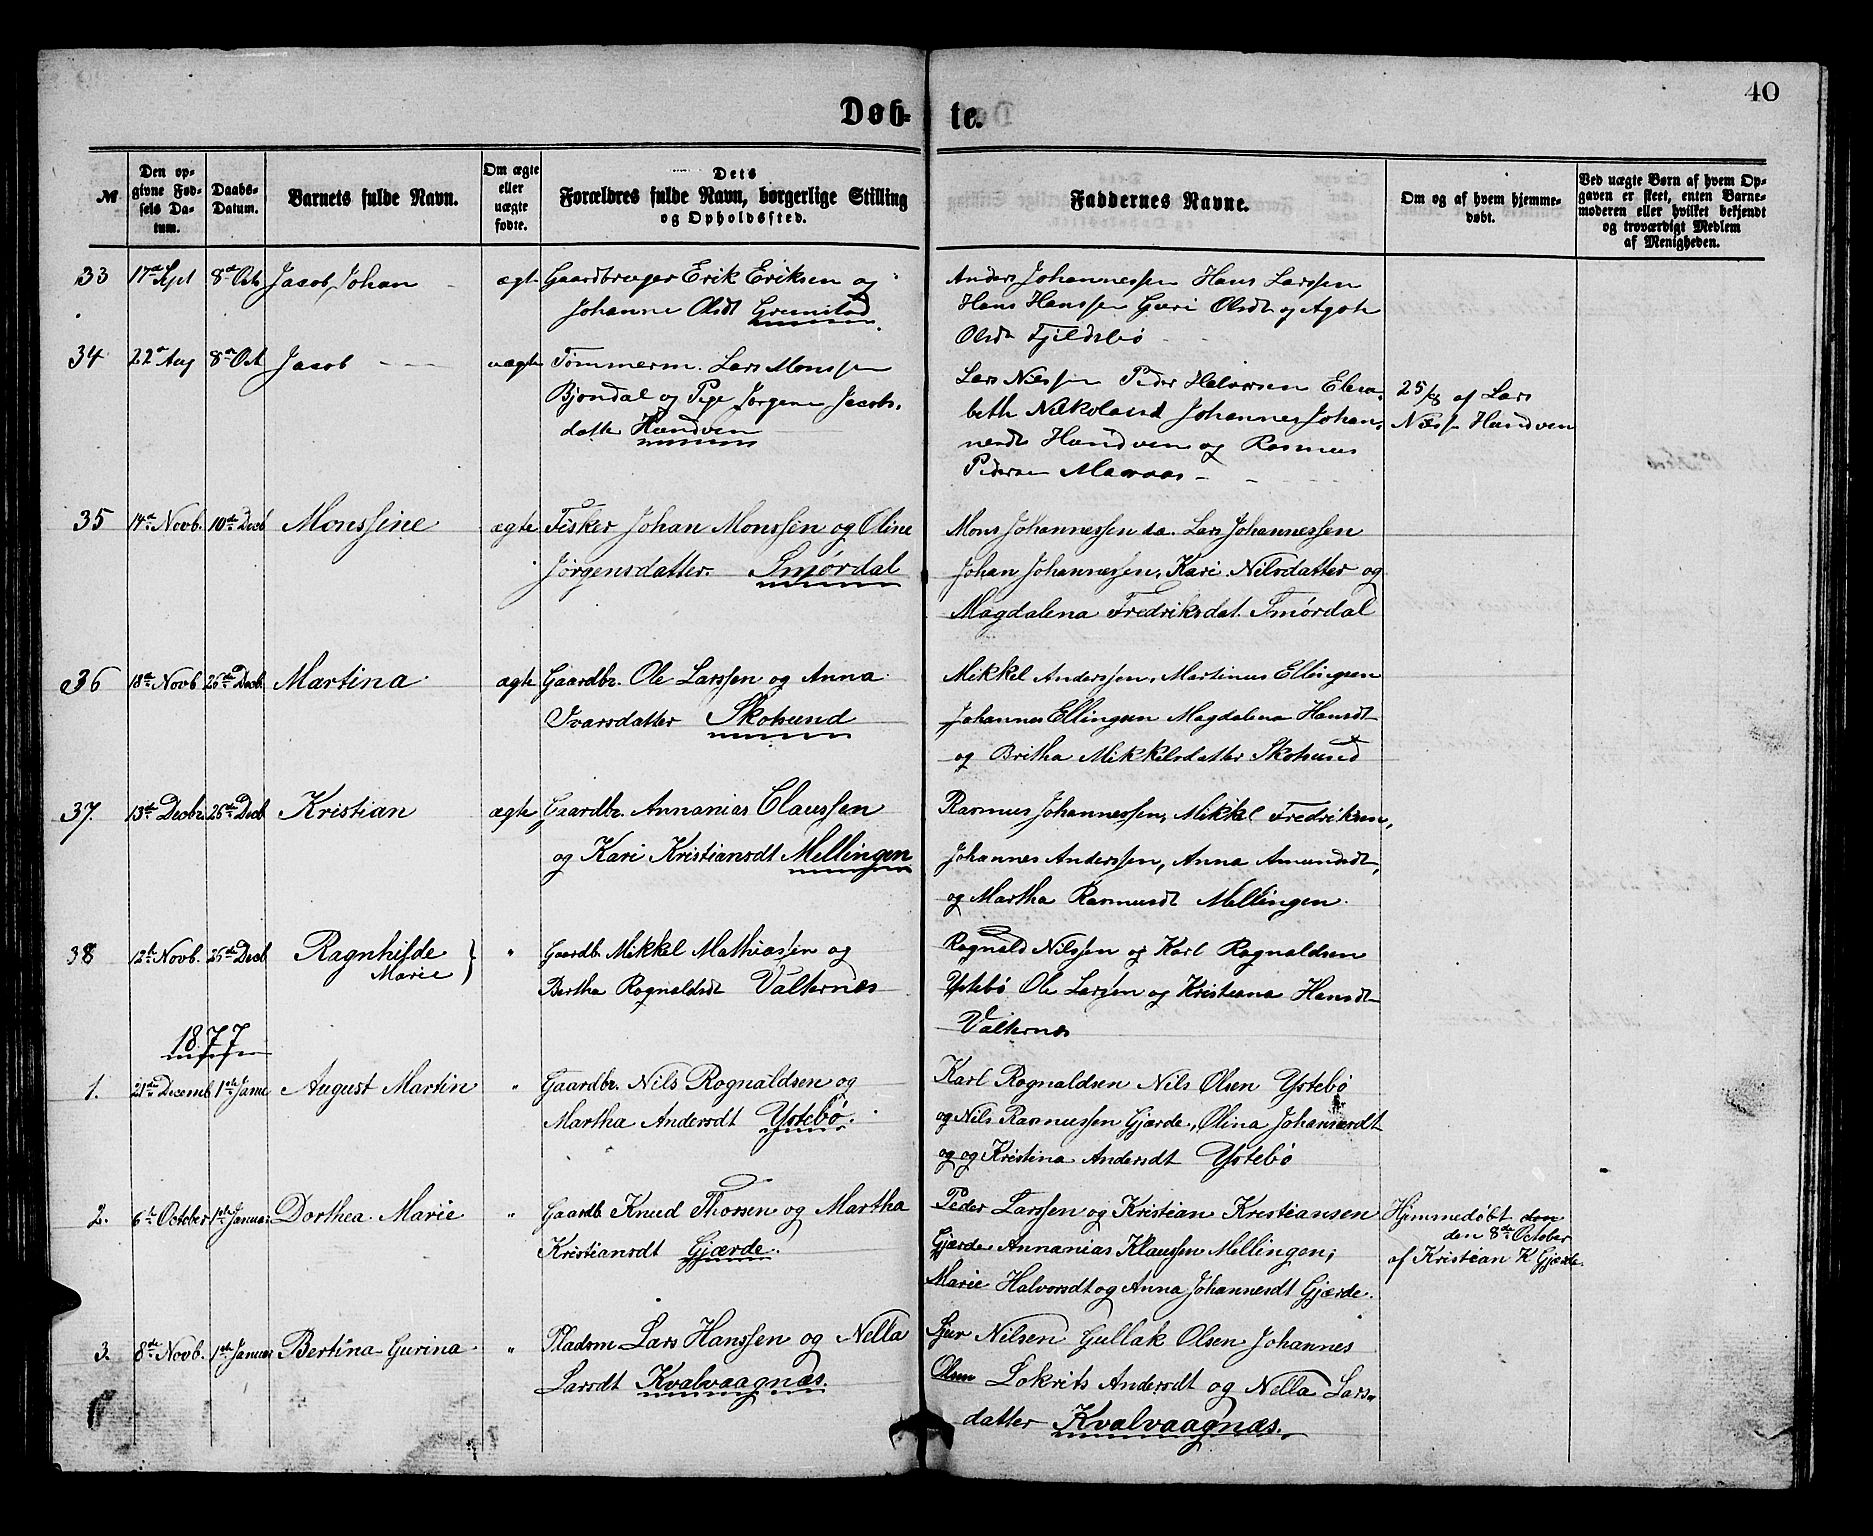 40
Døb- te.
№
Den opgivne Fødsels Datum.
Daabs-Datum.
Barnets fulde Navn.
Om ægte eller uægte fødte.
Dets Forældres fulde Navn, borgerlige Stilling og Opholdssted.
Faddernes Navne.
Om og af hvem hjemmedøbt.
Ved uægte Børn af hvem Opgaven er skeet, enten Barnemoderen eller hvilket bekjendt og troværdigt Medlem af Menigheden.
33 17de Sept 8de Oct Jacob Johan ægte Gaardbruger Erik Eriksen og
Johanne Olsdt
Anders Johannessen Hans Larssen
Hans Hanssen Guri Olsdt og Agate
Olsdt Fjeldsbø
34 22de Aug 8de Oct Jacob uægte Tømmerm. Lars Monssen
Bjøndal og Pige Jørgene Jacobs-
datter Handven
Lars Nilssen Peder Halvorsen
Johannes Johan-
Handven og Rasmus
Pedersen
25/8 af Lars
Nilss Handven
35 14de Novb. 10de Decb Monssine ægte Fisker Johan Monssen og Oline
Jørgensdatter. Smørdal
Mons Johannessen sa. Lars Johannessen
Johan Johannessen, Kari Nilsdatter og
Magdalena Fredriksdat. Smørdal
36 18de Novb 26de Decb. Martina ægte Gaardbr. Ole Larssen og Anna
Ivarsdatter Skotsund
Mikkel Anderssen, Martinus Ellingsen
Johannes Ellingsen Magdalena Hansdt
og Britha Mikkelsdatter Skotsund
37. 13de Decbr. 26de Decb Kristian ægte Gaardbr. Annanias Claussen
og Kari Kristiansdt Mellingen
Rasmus Johannessen, Mikkel Fredriksen,
Johannes Anderssen, Anna Amundsdt,
og Martha Rasmusdt Mellingen.
38 12te Novb. 26de Decb Ragnhilde
Marie } " Gaardb. Mikkel Mathiassen og
Bertha Rognaldsdt Valternæs
Rognald Nilssen og Karl Rognaldsen
Ystebø Ole Larsen og Kristiana Hansdt
Valternæs
1877
1. 21de Decemb. 1ste Janr August Martin " Gaardbr. Nils Rognaldsen og
Martha Andersdt Ystebø.
Karl Rognaldsen Nils Olsen Ystebø
og Nils Rasmussen Gjærde, Olina Johannesdt
og og Kristina Andersdt Ystebø
2. 6te October 1ste Januar Dorthea Marie " Gaardb. Knud Thorsen og Martha
Kristiansdt Gjærde.
Peder Larssen og Kristian Kristiansen
Gjærde Annanias Klaussen Mellingen,
Marie Halvorsdt og Anna Johannesdt Gjærde.
Hjemmedøbt den
den 8de October
af Kristian K Gjærde.
3. 8de Novb. 1ste Januar Bertina Gurina " Pladsm Lars Hanssen og Nella
Larsdt Kvalvaagnæs.
Sjur Nilsen Gullak Olsen Johannes
Olsen Lokrits Andersdt og Nella Lars-
datter Kvalvaagnæs.